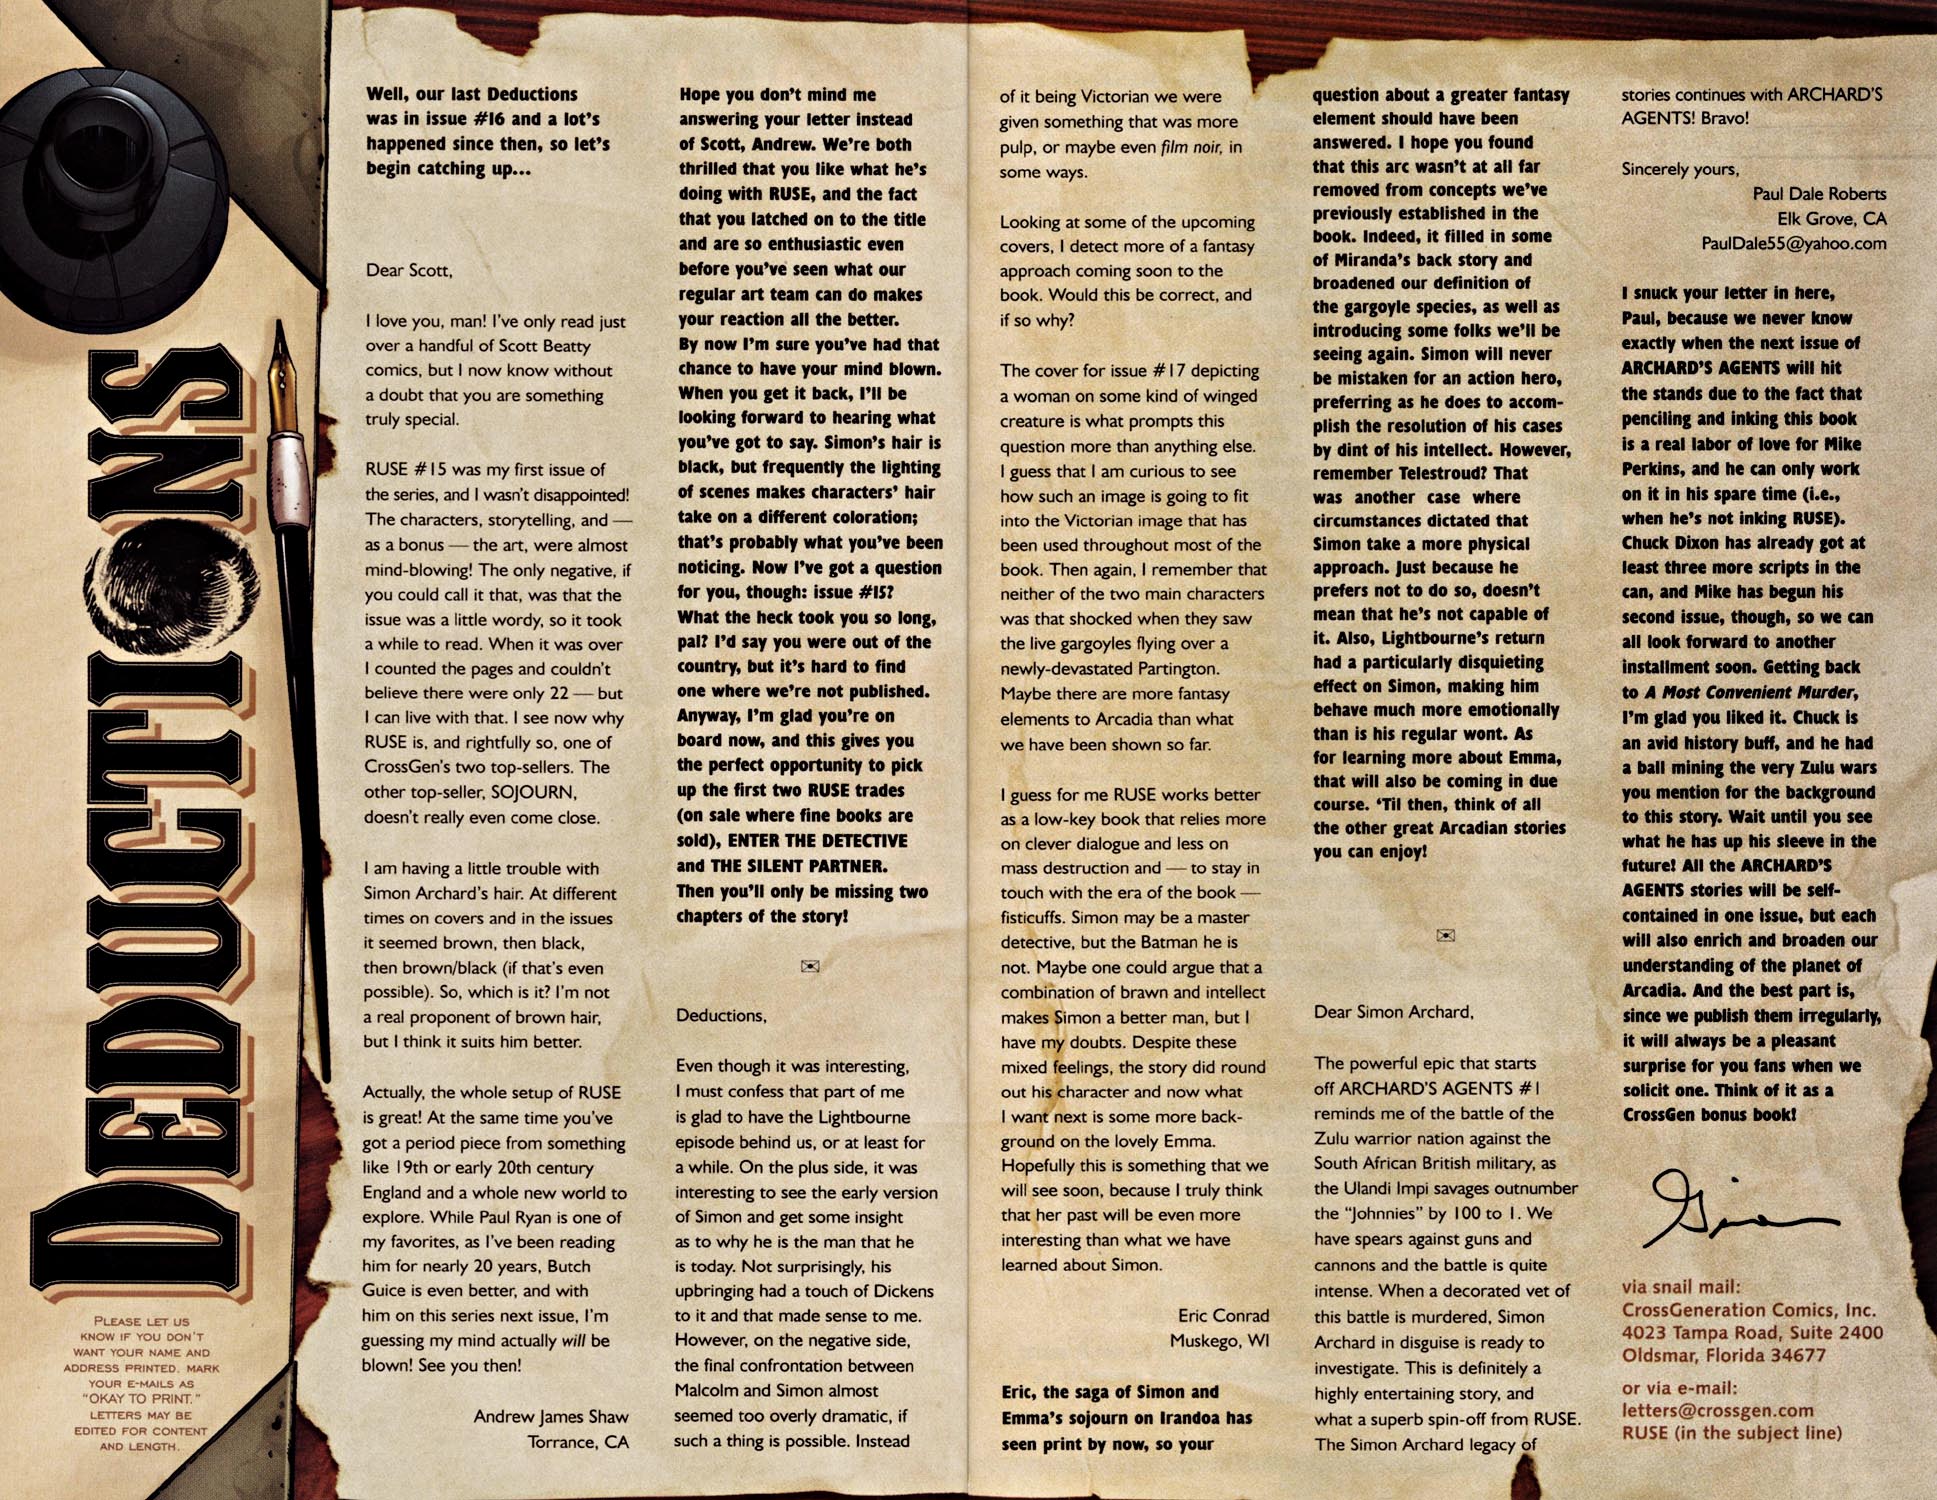 DEDUCTIONS
PLEASE LET US
KNOW IF YOU DON'T
WANT YOUR NAME AND
ADDRESS PRINTED. MARK
YOUR E-MAILS AS
"OKAY TO PRINT."
LETTERS MAY BE
EDITED FOR CONTENT
AND LENGTH.
Well, our last Deductions
was in issue #16 and a lot's
happened since then, so let's
begin catching up...
Dear Scott,
I love you, man! I've only read just
over a handful of Scott Beatty
comics, but I now know without
a doubt that you are something
truly special.
RUSE #15 was my first issue of
the series, and I wasn't disappointed!
The characters, storytelling, and —
as a bonus — the art, were almost
mind-blowing! The only negative, if
you could call it that, was that the
issue was a little wordy, so it took
a while to read. When it was over
I counted the pages and couldn't
believe there were only 22 — but
I can live with that. I see now why
RUSE is, and rightfully so, one of
CrossGen's two top-sellers. The
other top-seller, SOJOURN,
doesn't really even come close.
I am having a little trouble with
Simon Archard's hair. At different
times on covers and in the issues
it seemed brown, then black,
then brown/black (if that's even
possible). So, which is it? I'm not
a real proponent of brown hair,
but I think it suits him better.
Actually, the whole setup of RUSE
is great! At the same time you've
got a period piece from something
like 19th or early 20th century
England and a whole new world to
explore. While Paul Ryan is one of
my favorites, as I've been reading
him for nearly 20 years, Butch
Guice is even better, and with
him on this series next issue, I'm
guessing my mind actually will be
blown! See you then!
Andrew James Shaw
Torrance, CA
Hope you don't mind me
answering your letter instead
of Scott, Andrew. We're both
thrilled that you like what he's
doing with RUSE, and the fact
that you latched on to the title
and are so enthusiastic even
before you've seen what our
regular art team can do makes
your reaction all the better.
By now I'm sure you've had that
chance to have your mind blown.
When you get it back, I'll be
looking forward to hearing what
you've got to say. Simon's hair is
black, but frequently the lighting
of scenes makes characters' hair
take on a different coloration;
that's probably what you've been
noticing. Now I've got a question
for you, though: issue #15?
What the heck took you so long,
pal? I'd say you were out of the
country, but it's hard to find
one where we're not published.
Anyway, I'm glad you're on
board now, and this gives you
the perfect opportunity to pick
up the first two RUSE trades
(on sale where fine books are
sold), ENTER THE DETECTIVE
and THE SILENT PARTNER.
Then you'll only be missing two
chapters of the story!
Deductions,
Even though it was interesting,
I must confess that part of me
is glad to have the Lightbourne
episode behind us, or at least for
a while. On the plus side, it was
interesting to see the early version
of Simon and get some insight
as to why he is the man that he
is today. Not surprisingly, his
upbringing had a touch of Dickens
to it and that made sense to me.
However, on the negative side,
the final confrontation between
Malcolm and Simon almost
seemed too overly dramatic, if
such a thing is possible. Instead
of it being Victorian we were
given something that was more
pulp, or maybe even film noir, in
some ways.
Looking at some of the upcoming
covers, I detect more of a fantasy
approach coming soon to the
book. Would this be correct, and
if so why?
The cover for issue #17 depicting
a woman on some kind of winged
creature is what prompts this
question more than anything else.
I guess that I am curious to see
how such an image is going to fit
into the Victorian image that has
been used throughout most of the
book. Then again, I remember that
neither of the two main characters
was that shocked when they saw
the live gargoyles flying over a
newly-devastated Partington.
Maybe there are more fantasy
elements to Arcadia than what
we have been shown so far.
I guess for me RUSE works better
as a low-key book that relies more
on clever dialogue and less on
mass destruction and — to stay in
touch with the era of the book —
fisticuffs. Simon may be a master
detective, but the Batman he is
not. Maybe one could argue that a
combination of brawn and intellect
makes Simon a better man, but I
have my doubts. Despite these
mixed feelings, the story did round
out his character and now what
I want next is some more back-
ground on the lovely Emma.
Hopefully this is something that we
will see soon, because I truly think
that her past will be even more
interesting than what we have
learned about Simon.
Eric Conrad
Muskego, WI
Eric, the saga of Simon and
Emma's sojourn on Irandoa has
seen print by now, so your
question about a greater fantasy
element should have been
answered. I hope you found
that this arc wasn't at all far
removed from concepts we've
previously established in the
book. Indeed, it filled in some
of Miranda's back story and
broadened our definition of
the gargoyle species, as well as
introducing some folks we'll be
seeing again. Simon will never
be mistaken for an action hero,
preferring as he does to accom-
plish the resolution of his cases
by dint of his intellect. However,
remember Telestroud? That
was another case where
circumstances dictated that
Simon take a more physical
approach. Just because he
prefers not to do so, doesn't
mean that he's not capable of
it. Also, Lightbourne's return
had a particularly disquieting
effect on Simon, making him
behave much more emotionally
than is his regular wont. As
for learning more about Emma,
that will also be coming in due
course. 'Til then, think of all
the other great Arcadian stories
you can enjoy!
Dear Simon Archard,
The powerful epic that starts
off ARCHARD'S AGENTS #1
reminds me of the battle of the
Zulu warrior nation against the
South African British military, as
the Ulandi Impi savages outnumber
the "Johnnies" by 100 to 1. We
have spears against guns and
cannons and the battle is quite
intense. When a decorated vet of
this battle is murdered, Simon
Archard in disguise is ready to
investigate. This is definitely a
highly entertaining story, and
what a superb spin-off from RUSE.
The Simon Archard legacy of
stories continues with ARCHARD'S
AGENTS! Bravo!
Sincerely yours,
Paul Dale Roberts
Elk Grove, CA
PaulDale55@yahoo.com
I snuck your letter in here,
Paul, because we never know
exactly when the next issue of
ARCHARD'S AGENTS will hit
the stands due to the fact that
penciling and inking this book
is a real labor of love for Mike
Perkins, and he can only work
on it in his spare time (i.e.,
when he's not inking RUSE).
Chuck Dixon has already got at
least three more scripts in the
can, and Mike has begun his
second issue, though, so we can
all look forward to another
installment soon. Getting back
to A Most Convenient Murder,
I'm glad you liked it. Chuck is
an avid history buff, and he had
a ball mining the very Zulu wars
you mention for the background
to this story. Wait until you see
what he has up his sleeve in the
future! All the ARCHARD'S
AGENTS stories will be self-
contained in one issue, but each
will also enrich and broaden our
understanding of the planet of
Arcadia. And the best part is,
since we publish them irregularly,
it will always be a pleasant
surprise for you fans when we
solicit one. Think of it as a
CrossGen bonus book!
Gina
via snail mail:
CrossGeneration Comics, Inc.
4023 Tampa Road, Suite 2400
Oldsmar, Florida 34677
or via e-mail:
letters@crossgen.com
RUSE (in the subject line)